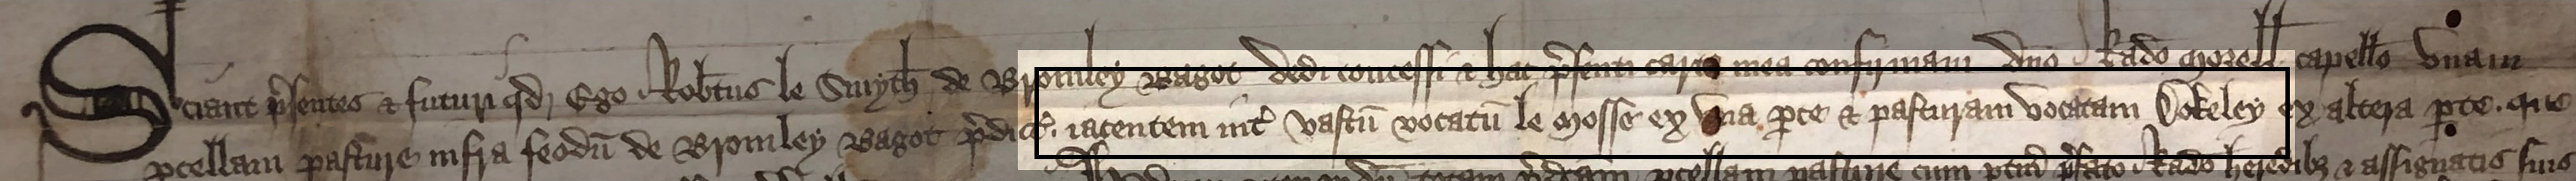 Sciant p̄sentes & futuri qd̄ Ego Rob̄tus le Smyth de Bromley Bagot dedi concessi & hac p̄senti carta mea confirmaui dn̄o Rad̄o Morell capellō vnam
ꝑcellam pasture infra feodū de Bromley Bagot p̄dict̄. iacentem int̄ vastū vocatū le Mosse ex vna ꝑte & pasturam vocatam Dokeley ex altera ꝑte. que
totam p̄dcām ꝑcellam pasture cum ptin̄ p̄fato Rad̄o heredibꝫ & assignatis suis